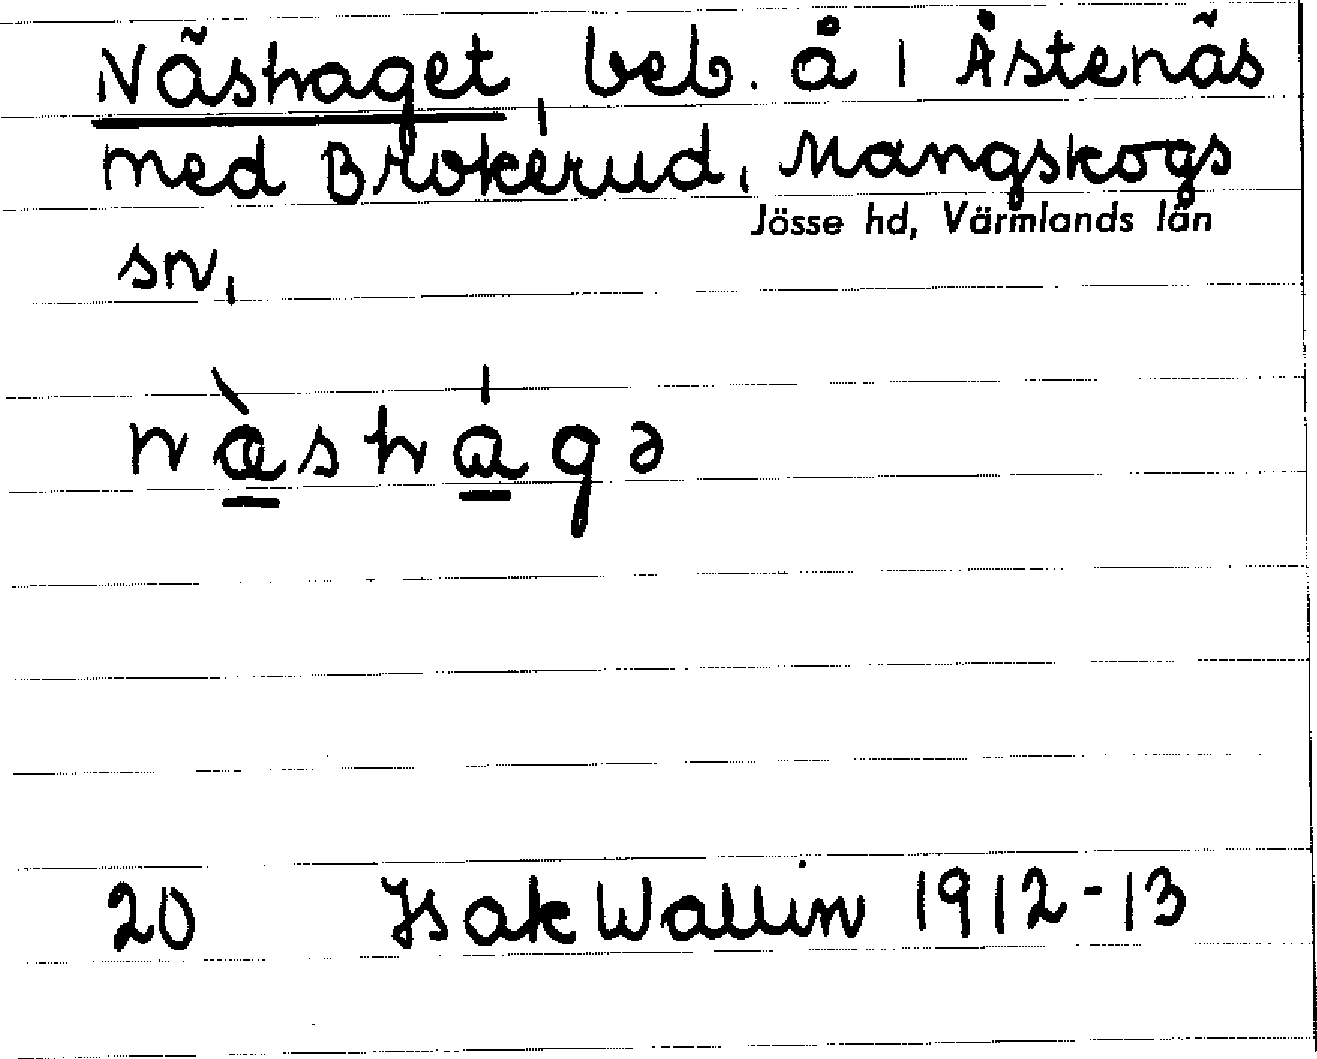 Näshaget, beb. å 1 Åstenäs
med Brokerud, Mangskogs
Jösse hd, Värmlands län
sn,
næ̀shágə
20 Isak Wallin 1912-13